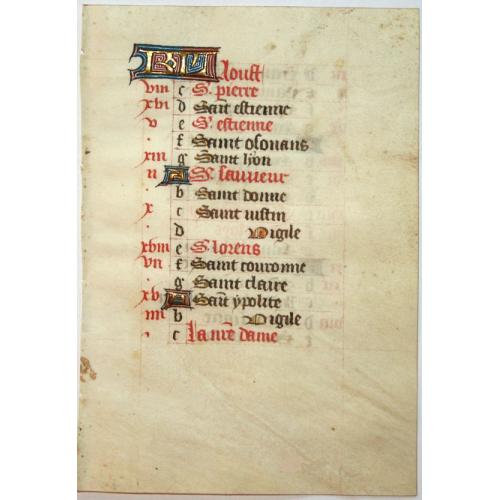 KL Aoust
viii c S. pierre
xvi d Sait estienne
v e S. estienne
f Saint osouans
xiii g Saint lyon
ii A S. sauueur
b Saint donne
x c Saint iustin
d Vigile
xviii e S. lorens
vii f Saint couronne
g Saint claire
xv A Sait ypolite
iiii b Vigile
c La nre dame